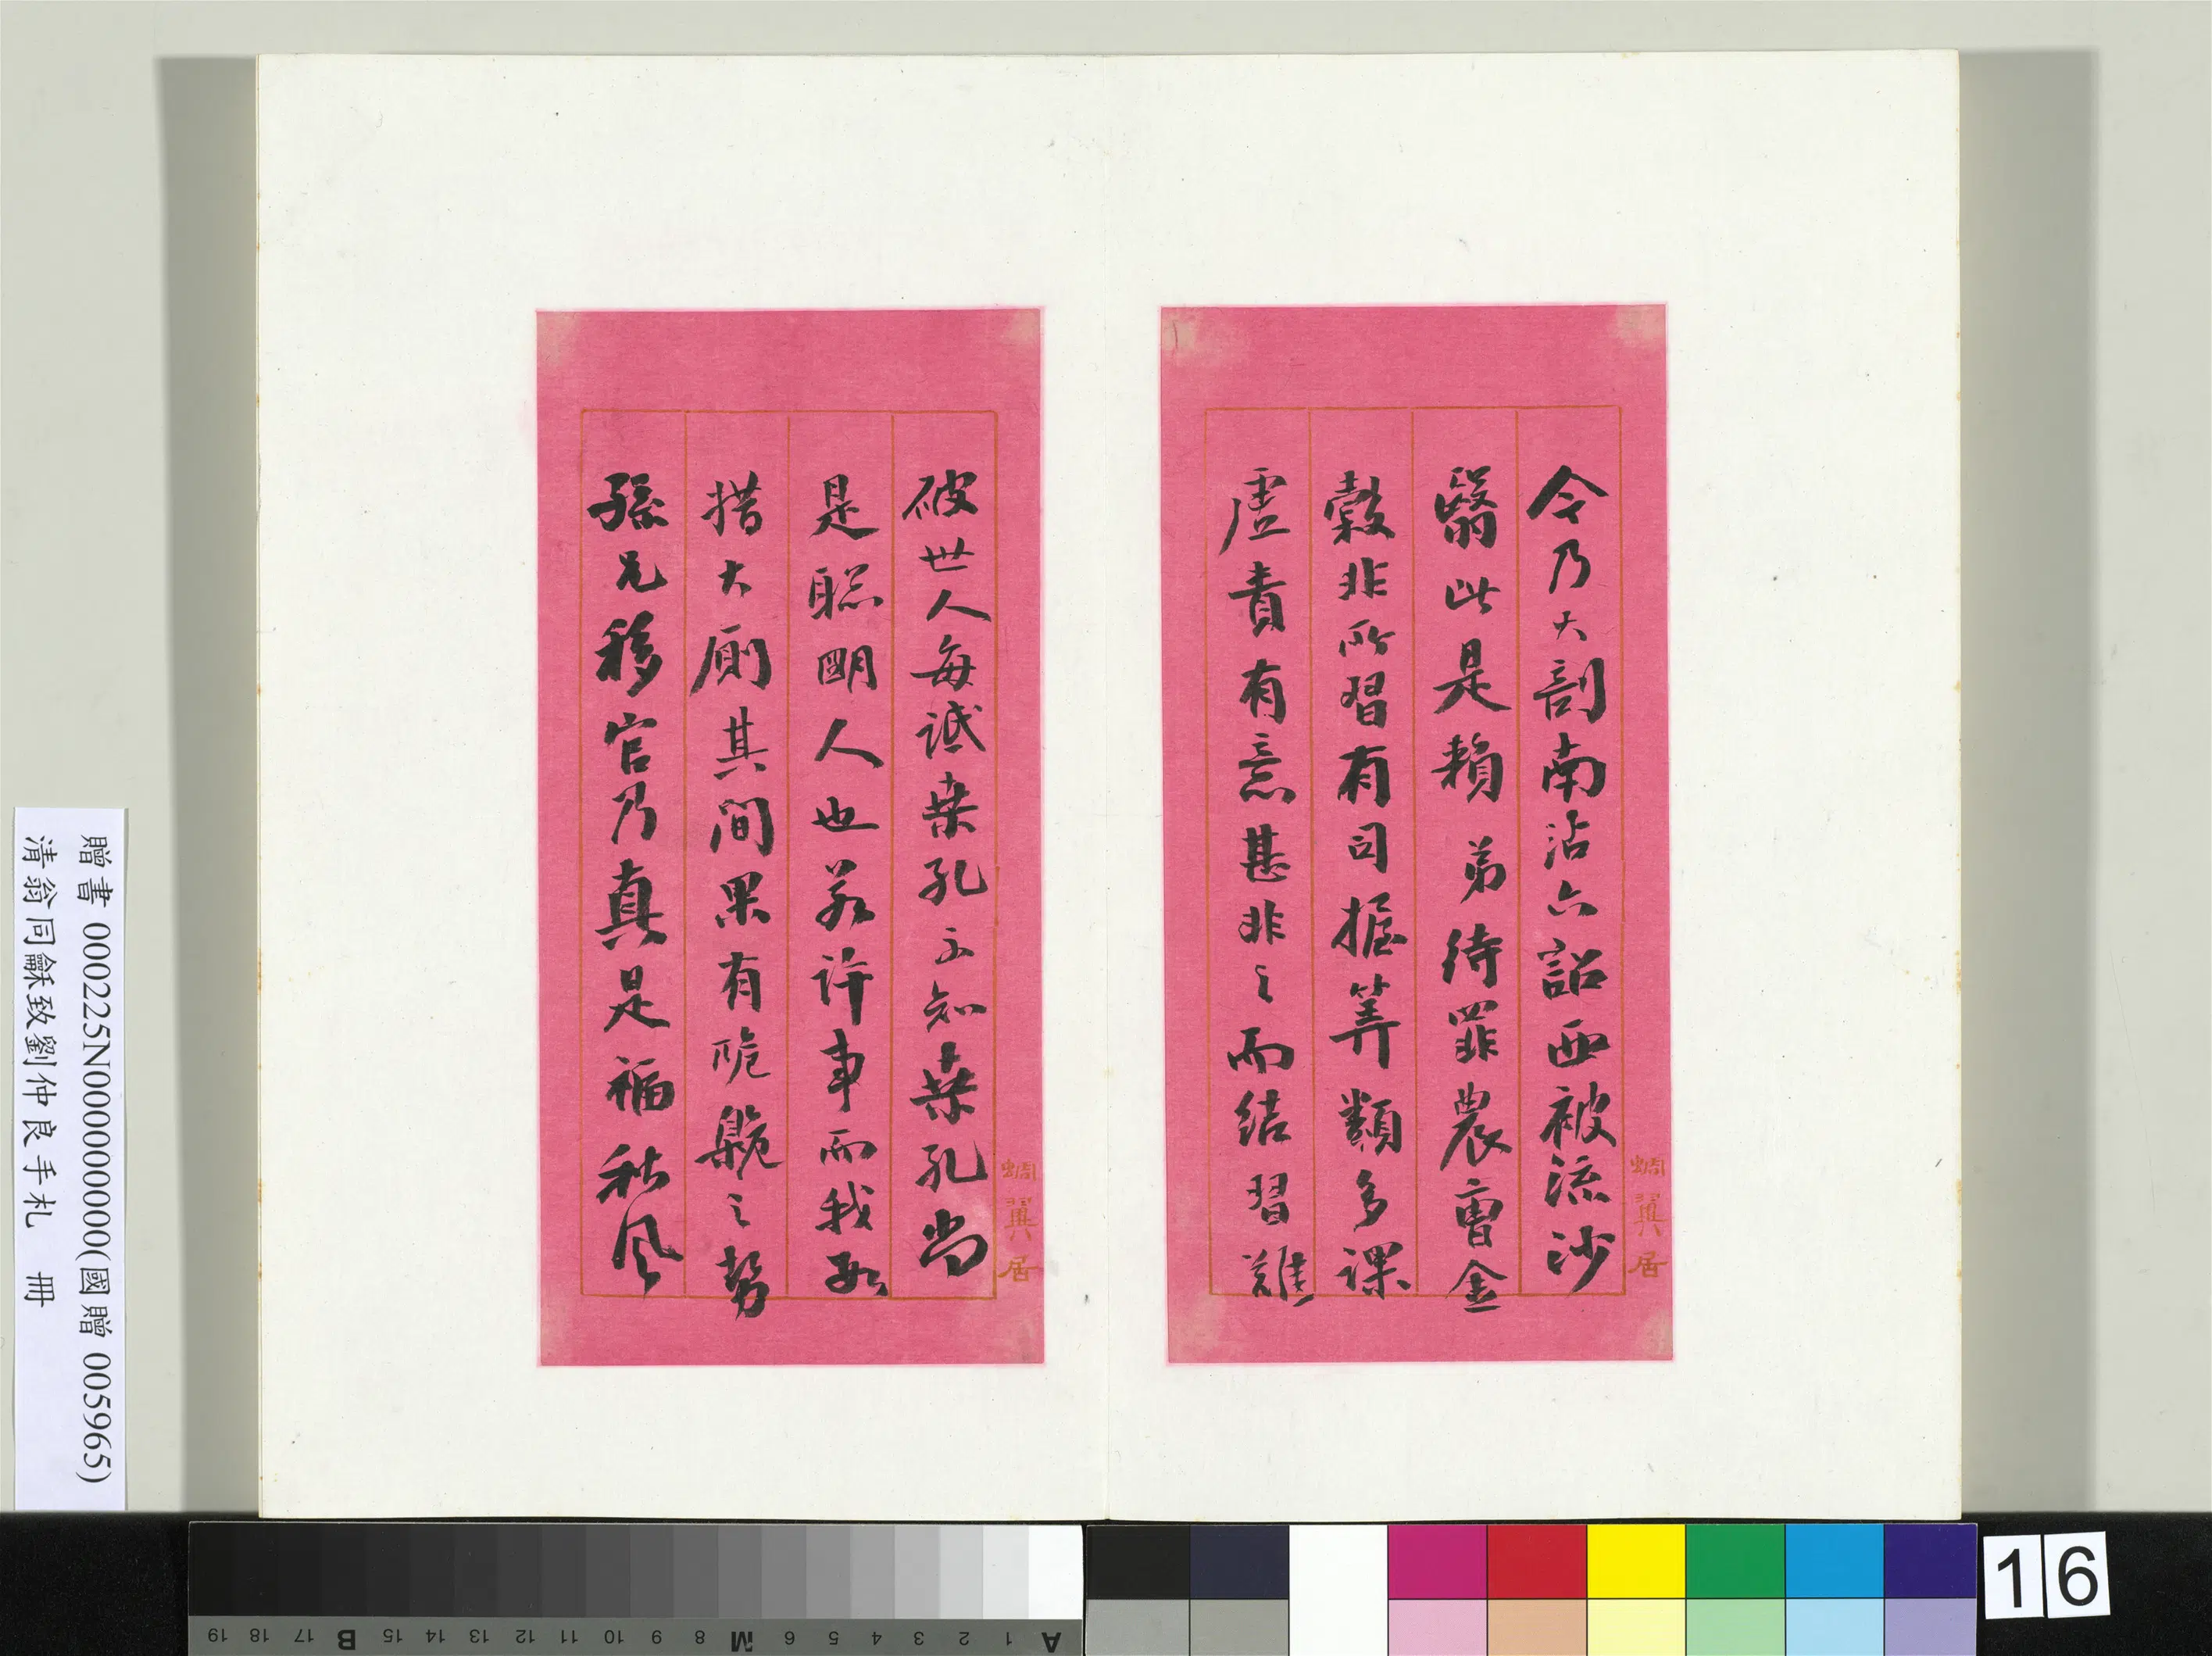 令乃大剖南沾六詔西被流沙
翳此是賴弟待罪農曹金
穀非所習有司握筭類多課
虛責有意甚非之而結習難
蜩翼居
破世人每詆桑孔不知桑孔尚
是聪朙人也若許事而我輩
措大厠其間果有阢臲之勢
孫兄移官乃真是福秋風
蜩翼居
贈書 000225N000000000(國贈 005965)
清翁同龢致劉仲良手札 冊
A 1 2 3 4 5 6 M 8 9 10 11 12 13 14 15 B 17 18 19
16